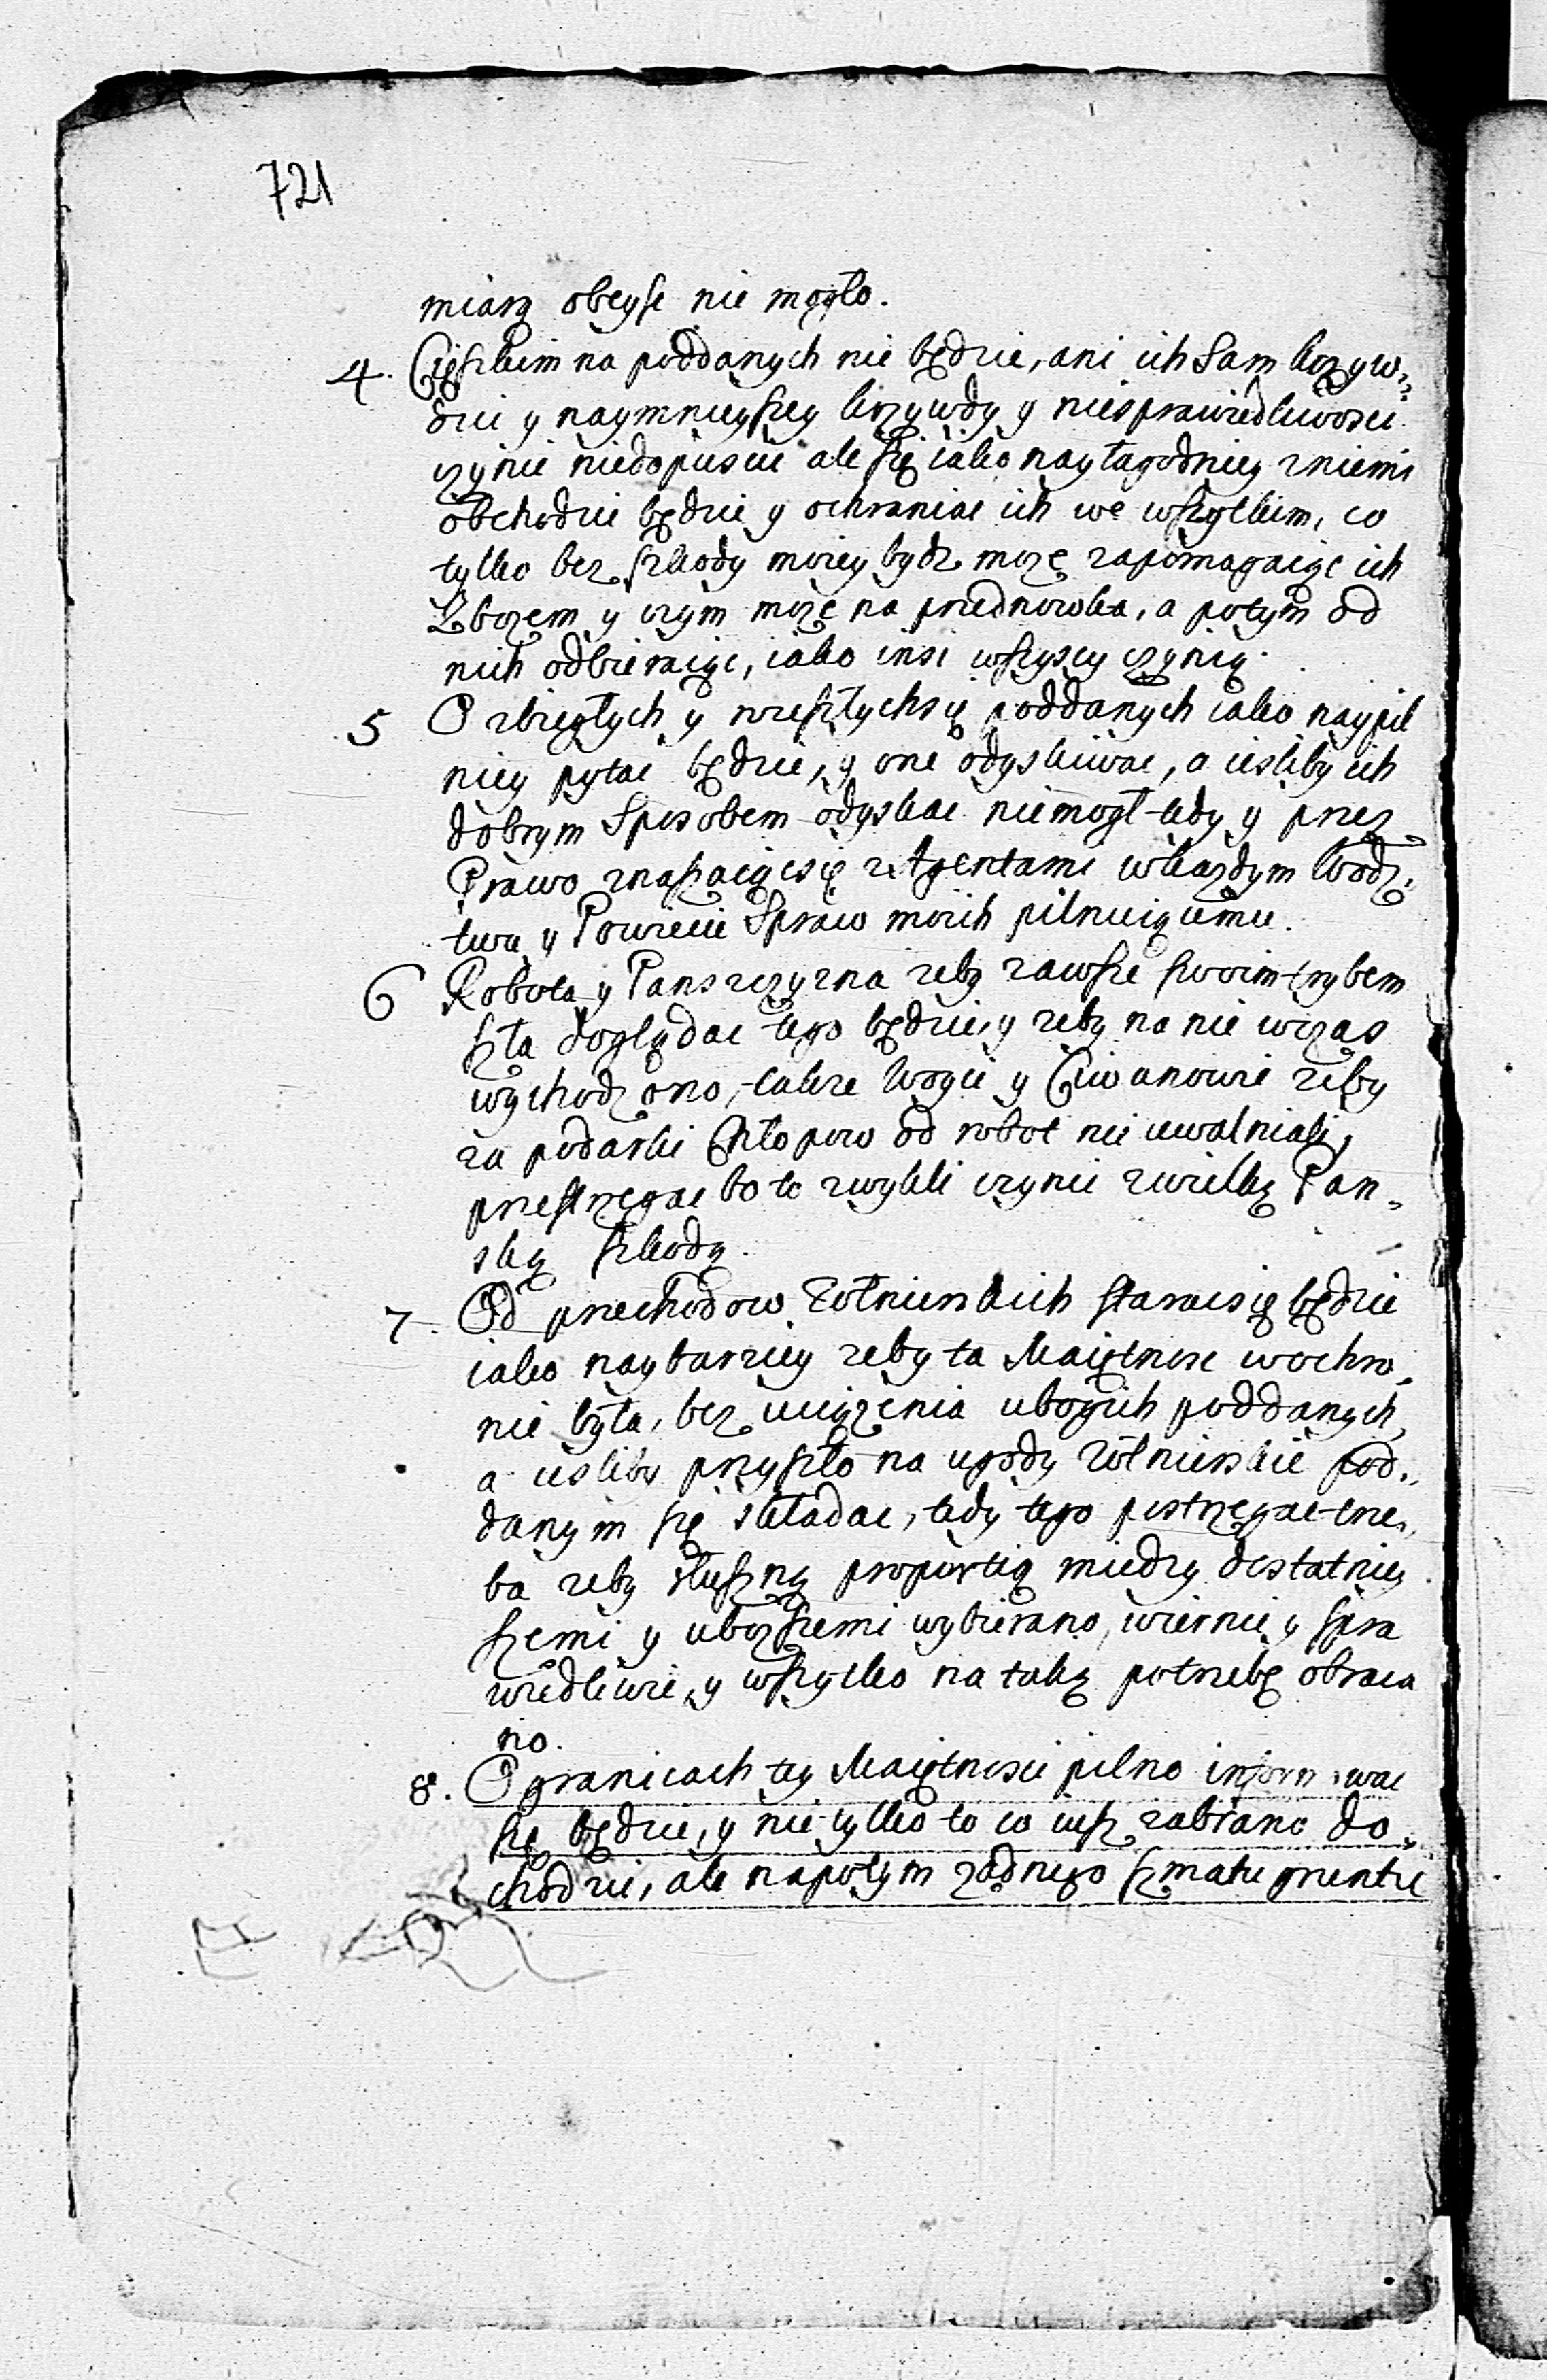 721
miarą obeysc nie mogło.
4. Cięszkim na poddanych nie będzie, ani ich Sam krzyw¬
dzic y naymnieyszey krzywdy y niesprawiedliwosci
czynic niedopusci ale się iako naylagodniey zniemi
obchodzic będzie y ochraniac ich we wszytkim, co
tylko bez szkody moiey bydz moze zapomagaiąc ich
Zbozem y czym moze na przednowku, a potym od
nich odbieraiąc, iako insi wszyscy czynią.
5 O zbiegłych y rozeszłychsię poddanych iako naypil
niey pytac będzie, y one odyskiwac, a iesliby ich
dobrym Sposobem odyskac niemogł tedy y przez
Prawo znaszaiącsię z Agentami wkazdym Wodz¬
twie y Powiecie Spraw moich pilnuiącemi.
6 Robota y Panszczyzna zeby zawsze swoim trybem
szła doglądac tego będzie, y zeby na nie wczas
wychodzono, takze Woyci y Ciwunowie zeby
za podarki Chłopow od robot nie uwalniali,
przestrzegac bo to zwykli czynic zwielką Pan¬
ską szkodą.
7. Od przechodow Zołnierskich staracsię będzie
iako naybarziey zeby ta Maiętnosc wochro¬
nie była, bez uciązenia ubogich poddanych,
a iesliby przyszło na ugody Zołnierskie pod¬
danym się składac, tedy tego postrzegac trze¬
ba zeby słuszną proportią miedzy dostatniey
szemi y ubozszemi wybierano, wiernie y spra
wiedliwie, y wszytko na taką potrzebę obraca
no.
8. O granicach tey Maiętnosci pilno informowac
się będzie, y nie tylko to co iusz zabrano do¬
chodzic, ale napotym zadnego szmatu gruntu